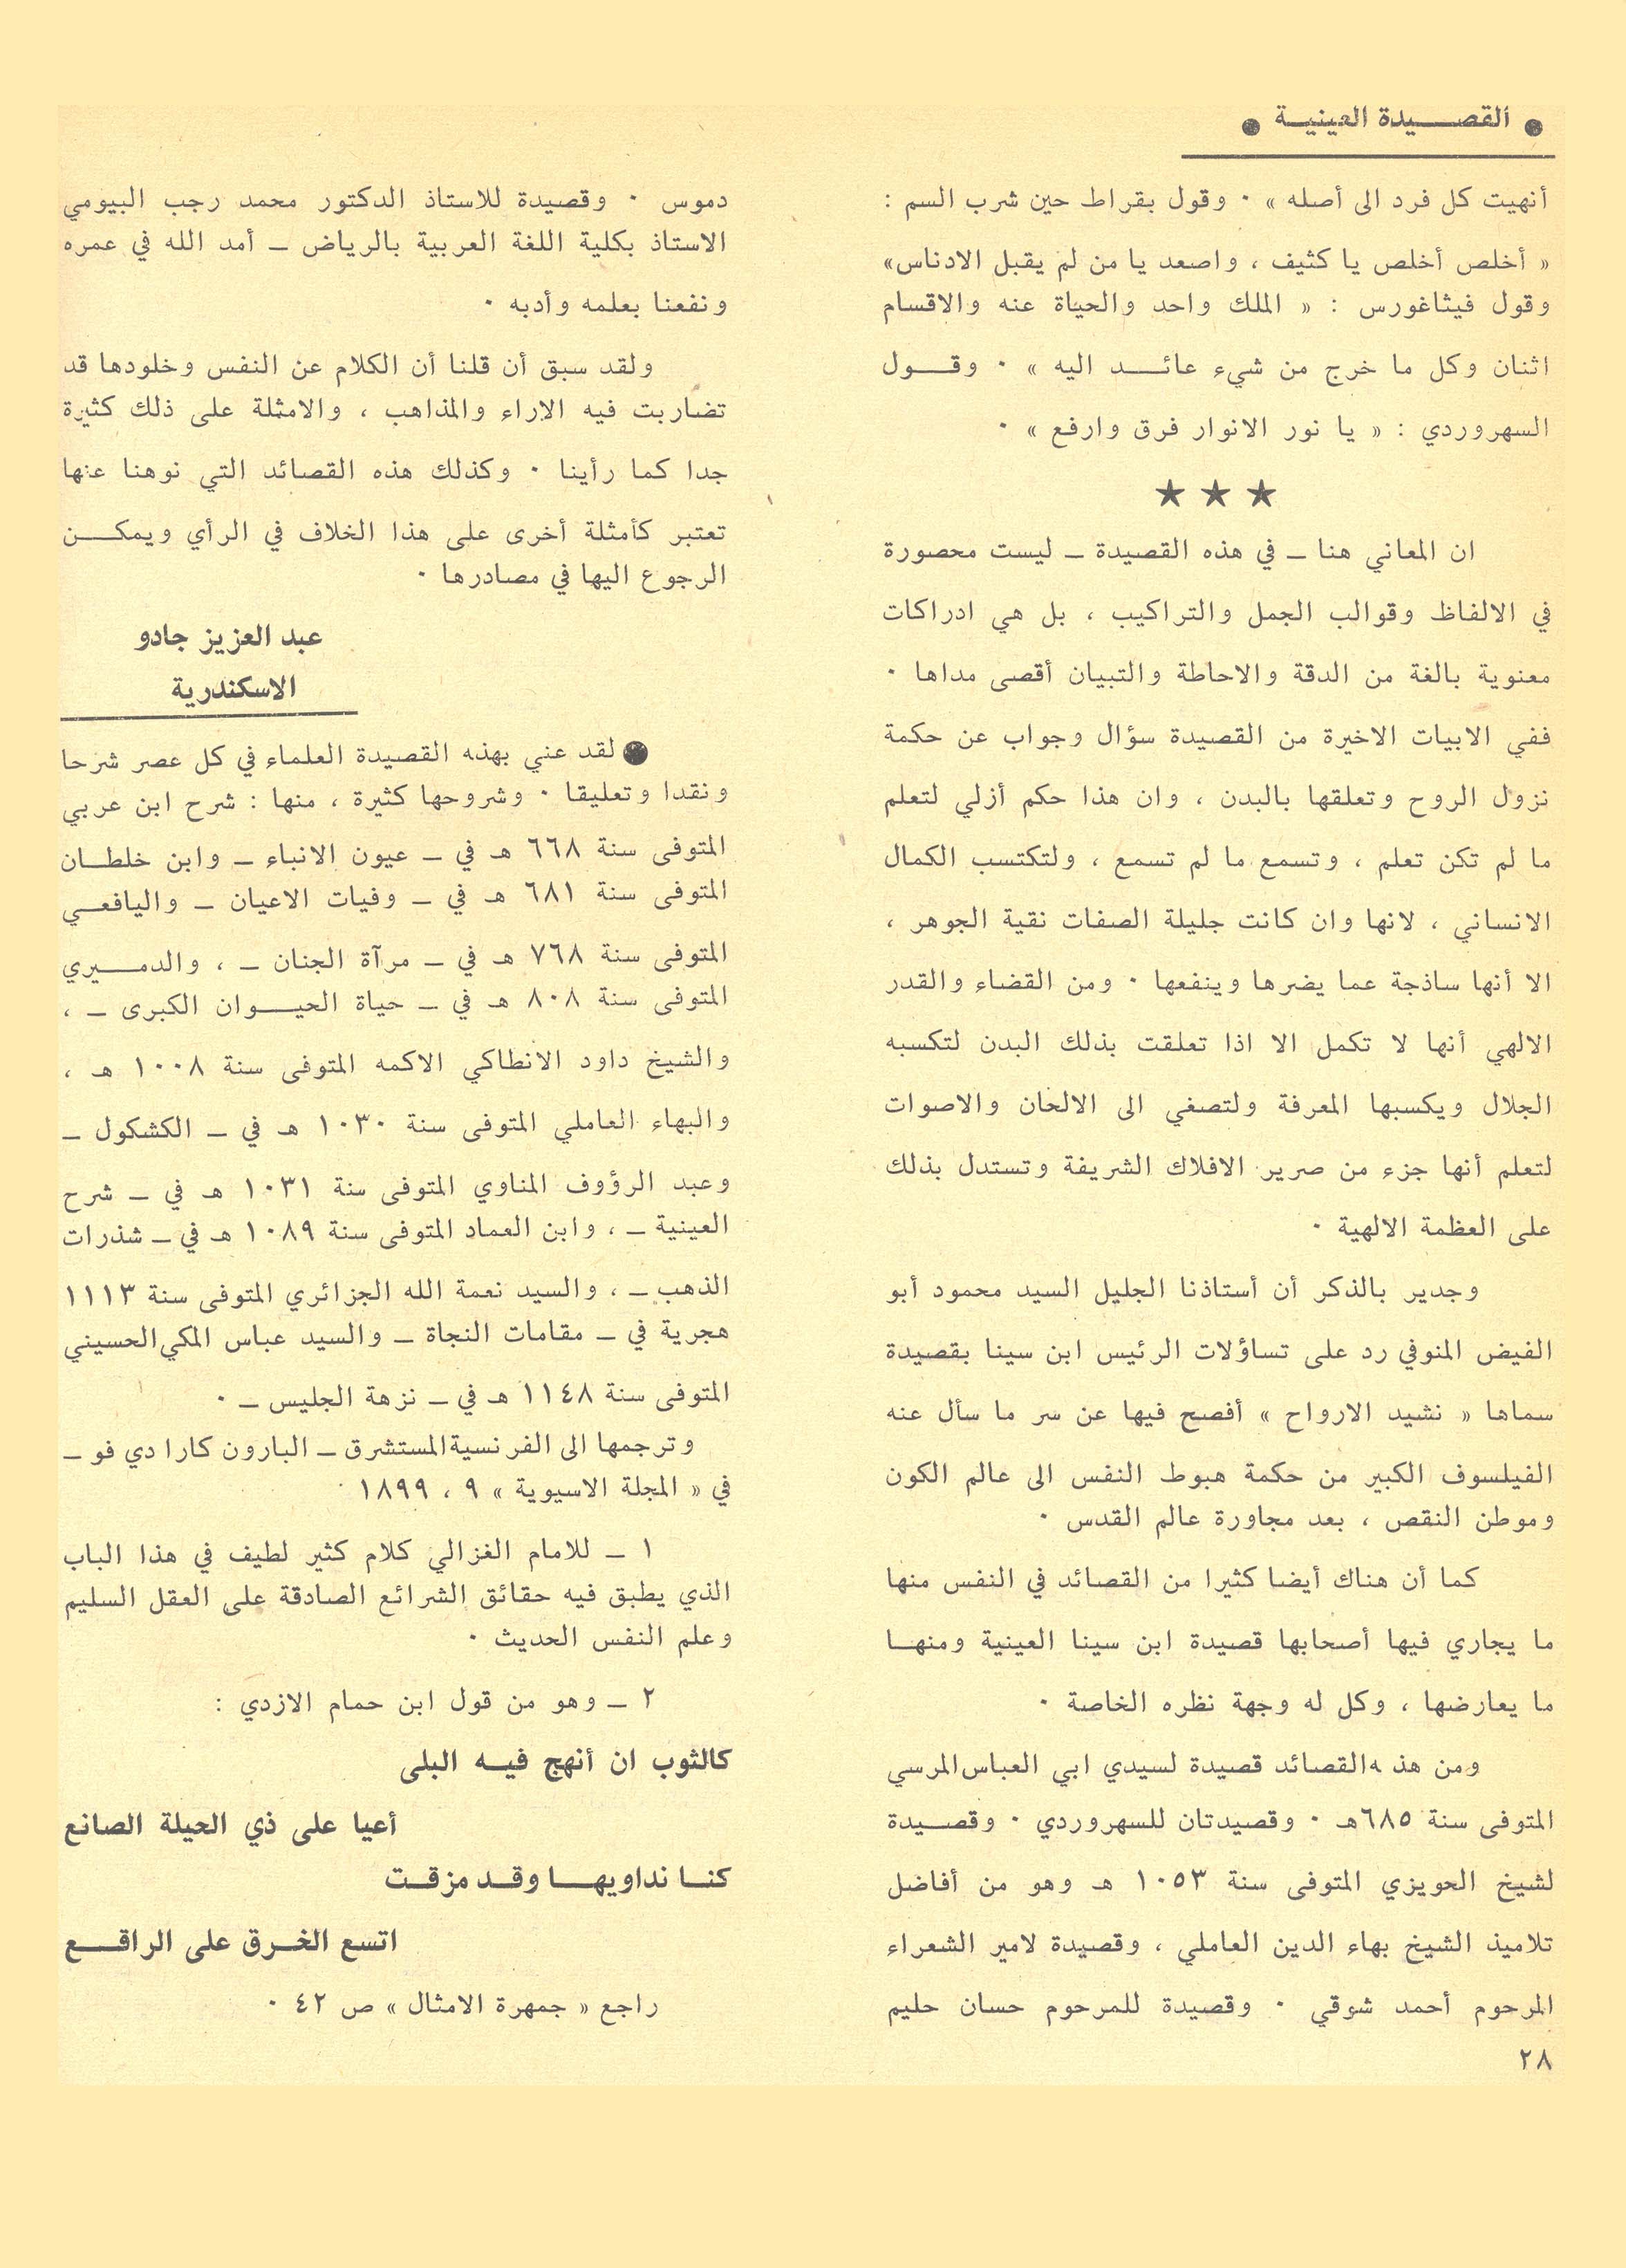 ● القصيدة العينية ●
أنهيت كل فرد الى أصله » ٠ وقول بقراط حين شرب السم :
« أخلص أخلص يا كثيف ، واصعد يا من لم يقبل الادناس»
وقول فيثاغورس : « الملك واحد والحياة عنه والاقسام
اثنان وكل ما خرج من شيء عائد اليه » ٠ وقول
السهروردي : « يا نور الانوار فرق وارفع » ٠
★ ★ ★
ان المعاني هنا – في هذه القصيدة – ليست محصورة
في الالفاظ وقوالب الجمل والتراكيب ، بل هي ادراكات
معنوية بالغة من الدقة والاحاطة والتبيان أقصى مداها ٠
ففي الابيات الاخيرة من القصيدة سؤال وجواب عن حكمة
نزول الروح وتعلقها بالبدن ، وان هذا حكم أزلي لتعلم
ما لم تكن تعلم ، وتسمع ما لم تسمع ، ولتكتسب الكمال
الانساني ، لانها وان كانت جليلة الصفات نقية الجوهر ،
الا أنها ساذجة عما يضرها وينفعها ٠ ومن القضاء والقدر
الالهي أنها لا تكمل الا اذا تعلقت بذلك البدن لتكسبه
الجلال ويكسبها المعرفة ولتصغي الى الالحان والاصوات
لتعلم أنها جزء من صرير الافلاك الشريفة وتستدل بذلك
على العظمة الالهية ٠
وجدير بالذكر أن أستاذنا الجليل السيد محمود أبو
الفيض المنوفي رد على تساؤلات الرئيس ابن سينا بقصيدة
سماها « نشيد الارواح » أفصح فيها عن سر ما سأل عنه
الفيلسوف الكبير من حكمة هبوط النفس الى عالم الكون
وموطن النقص ، بعد مجاورة عالم القدس ٠
كما أن هناك أيضا كثيرا من القصائد في النفس منها
ما يجاري فيها أصحابها قصيدة ابن سينا العينية ومنها
ما يعارضها ، وكل له وجهة نظره الخاصة ٠
ومن هذ ه القصائد قصيدة لسيدي ابي العباس المرسي
المتوفى سنة ٦٨٥هـ ٠ وقصيدتان للسهروردي ٠ وقصيدة
لشيخ الحويزي المتوفى سنة ١٠٥٣ هـ وهو من أفاضل
تلاميذ الشيخ بهاء الدين العاملي ، وقصيدة لامير الشعراء
المرحوم أحمد شوقي ٠ وقصيدة للمرحوم حسان حليم
٢٨
دموس ٠ وقصيدة للاستاذ الدكتور محمد رجب البيومي
الاستاذ بكلية اللغة العربية بالرياض – أمد الله في عمره
ونفعنا بعلمه وأدبه ٠
ولقد سبق أن قلنا أن الكلام عن النفس وخلودها قد
تضاربت فيه الاراء والمذاهب ، والامثلة على ذلك كثيرة
جدا كما رأينا ٠ وكذلك هذه القصائد التي نوهنا عنها
تعتبر كأمثلة أخرى على هذا الخلاف في الرأي ويمكن
الرجوع اليها في مصادرها ٠
عبد العزيز جادو
الاسكندرية
● لقد عني بهذه القصيدة العلماء في كل عصر شرحا
ونقدا وتعليقا ٠ وشروحها كثيرة ، منها : شرح ابن عربي
المتوفى سنة ٦٦٨ هـ في – عيون الانباء – وابن خلطان
المتوفى سنة ٦٨١ هـ في – وفيات الاعيان – واليافعي
المتوفى سنة ٧٦٨ هـ في – مرآة الجنان – ، والدميري
المتوفى سنة ٨٠٨ هـ في – حياة الحيوان الكبرى – ،
والشيخ داود الانطاكي الاكمه المتوفى سنة ١٠٠٨ هـ ،
والبهاء العاملي المتوفى سنة ١٠٣٠ هـ في – الكشكول –
وعبد الرؤوف المناوي المتوفى سنة ١٠٣١ هـ في – شرح
العينية – ، وابن العماد المتوفى سنة ١٠٨٩ هـ في – شذرات
الذهب – ، والسيد نعمة الله الجزائري المتوفى سنة ١١١٣
هجرية في – مقامات النجاة – والسيد عباس المكي الحسيني
المتوفى سنة ١١٤٨ هـ في – نزهة الجليس – ٠
وترجمها الى الفرنسية المستشرق – البارون كارا دي فو –
في « المجلة الاسيوية » ٩ ، ١٨٩٩ ٠
١ – للامام الغزالي كلام كثير لطيف في هذا الباب
الذي يطبق فيه حقائق الشرائع الصادقة على العقل السليم
وعلم النفس الحديث ٠
٢ – وهو من قول ابن حمام الازدي :
كالثوب ان أنهج فيه البلى
أعيا على ذي الحيلة الصانع
كنا نداويها وقد مزقت
اتسع الخرق على الراقع
راجع « جمهرة الامثال » ص ٤٢ ٠